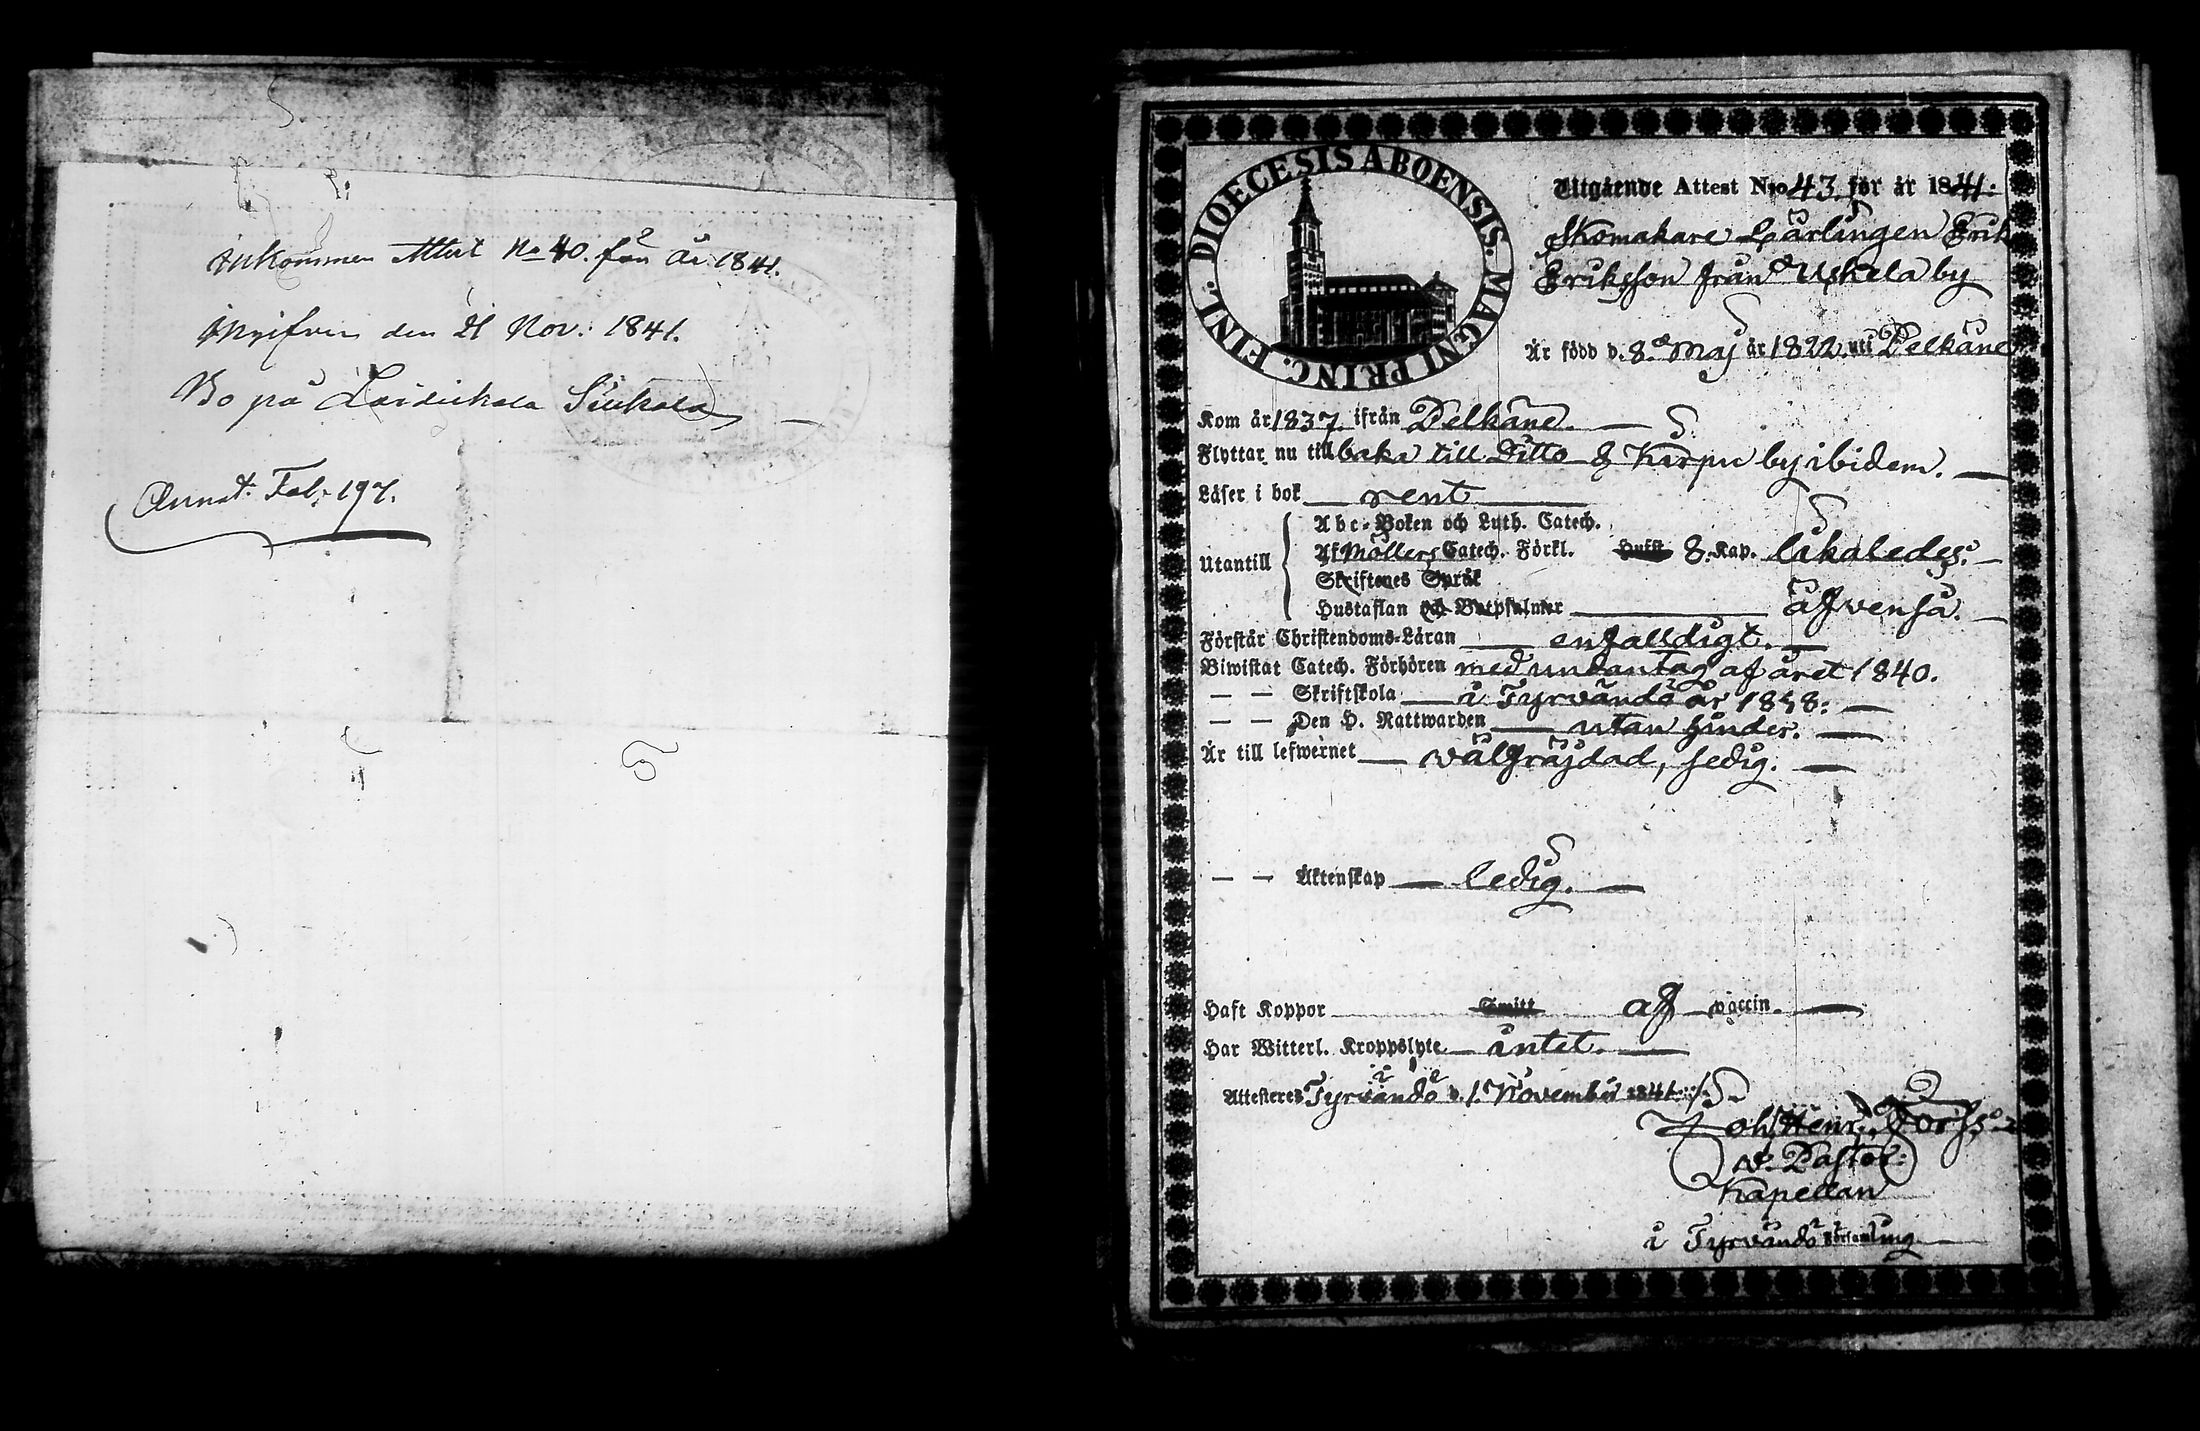 Inkommen Attest No 40. för år 1841.
Ingifven den 21 Nov: 1841.
Bo på
Annot. Fol. 197.
DIOECESIS ABOENSIS. MAGNI PRINC. FINL.
Utgående Attest N:o 43. för år 1841.
Skomakare Lärlingen Erik
Eriksson från Uskela by
Är född d. 8.de Maj år 1822. uti Pelkäne
Kom år 1837. ifrån Pelkäne.
Flyttar nu tillbaka till Ditto & Kirpu by ibidem.
Läser i bok rent
Utantill
Abc-Boken och Luth. Catech.
Af Möllers Catech. Förkl. 8. Kap. likaledes.
Skriftenes Språk
Hustaflan och Botpsalmer äfvenså.
Förstår Christendoms-Läran enfalldigt.
Biwistat Catech. Förhören med undantag af året 1840.
— — Skriftskola i Tyrvändö år 1838:
— — Den H. Nattwarden utan hinder.
Är till lefwernet välfräjdad, sedig.
— — Äktenskap ledig.
Haft Koppor af vaccin.
Har Witterl. Kroppslyte intet.
Attesteres Tyrvändö d. 1. November 1841.
Joh. Henr. Forss
v. Pastor.
Kapellan
i Tyrvändö Församling